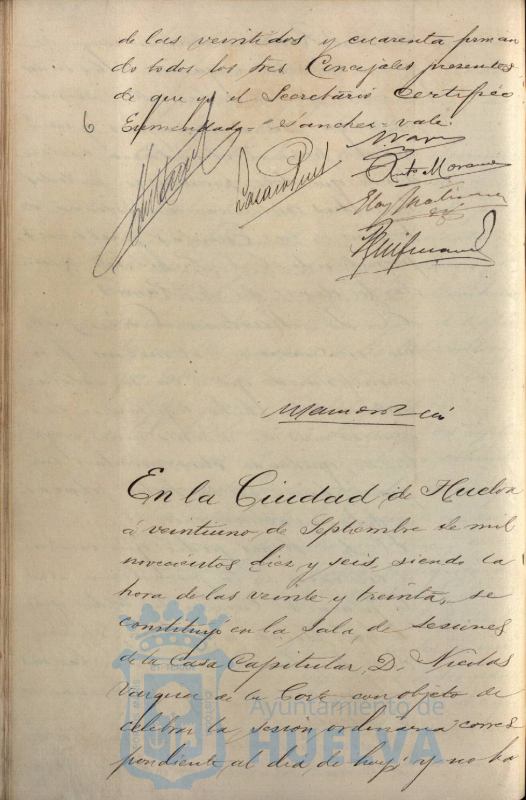 de las veintidos y cuarenta firman
do todos los tres Concejales presentes
de que yo el Secretario Certifico
Enmendado = Sanchez = vale.
En la Ciudad de Huelva
á veintiuno de Septiembre de mil
novecientos diez y seis, siendo la
hora de las veinte y treinta, se
constituyó en la Sala de Sesiones
de la Casa Capitular, D. Nicolás
Vazquez de la Corte con objeto de
celebrar la sesión ordinaria corres
pondiente al día de hoy; y no ha
Ayuntamiento de
HUELVA